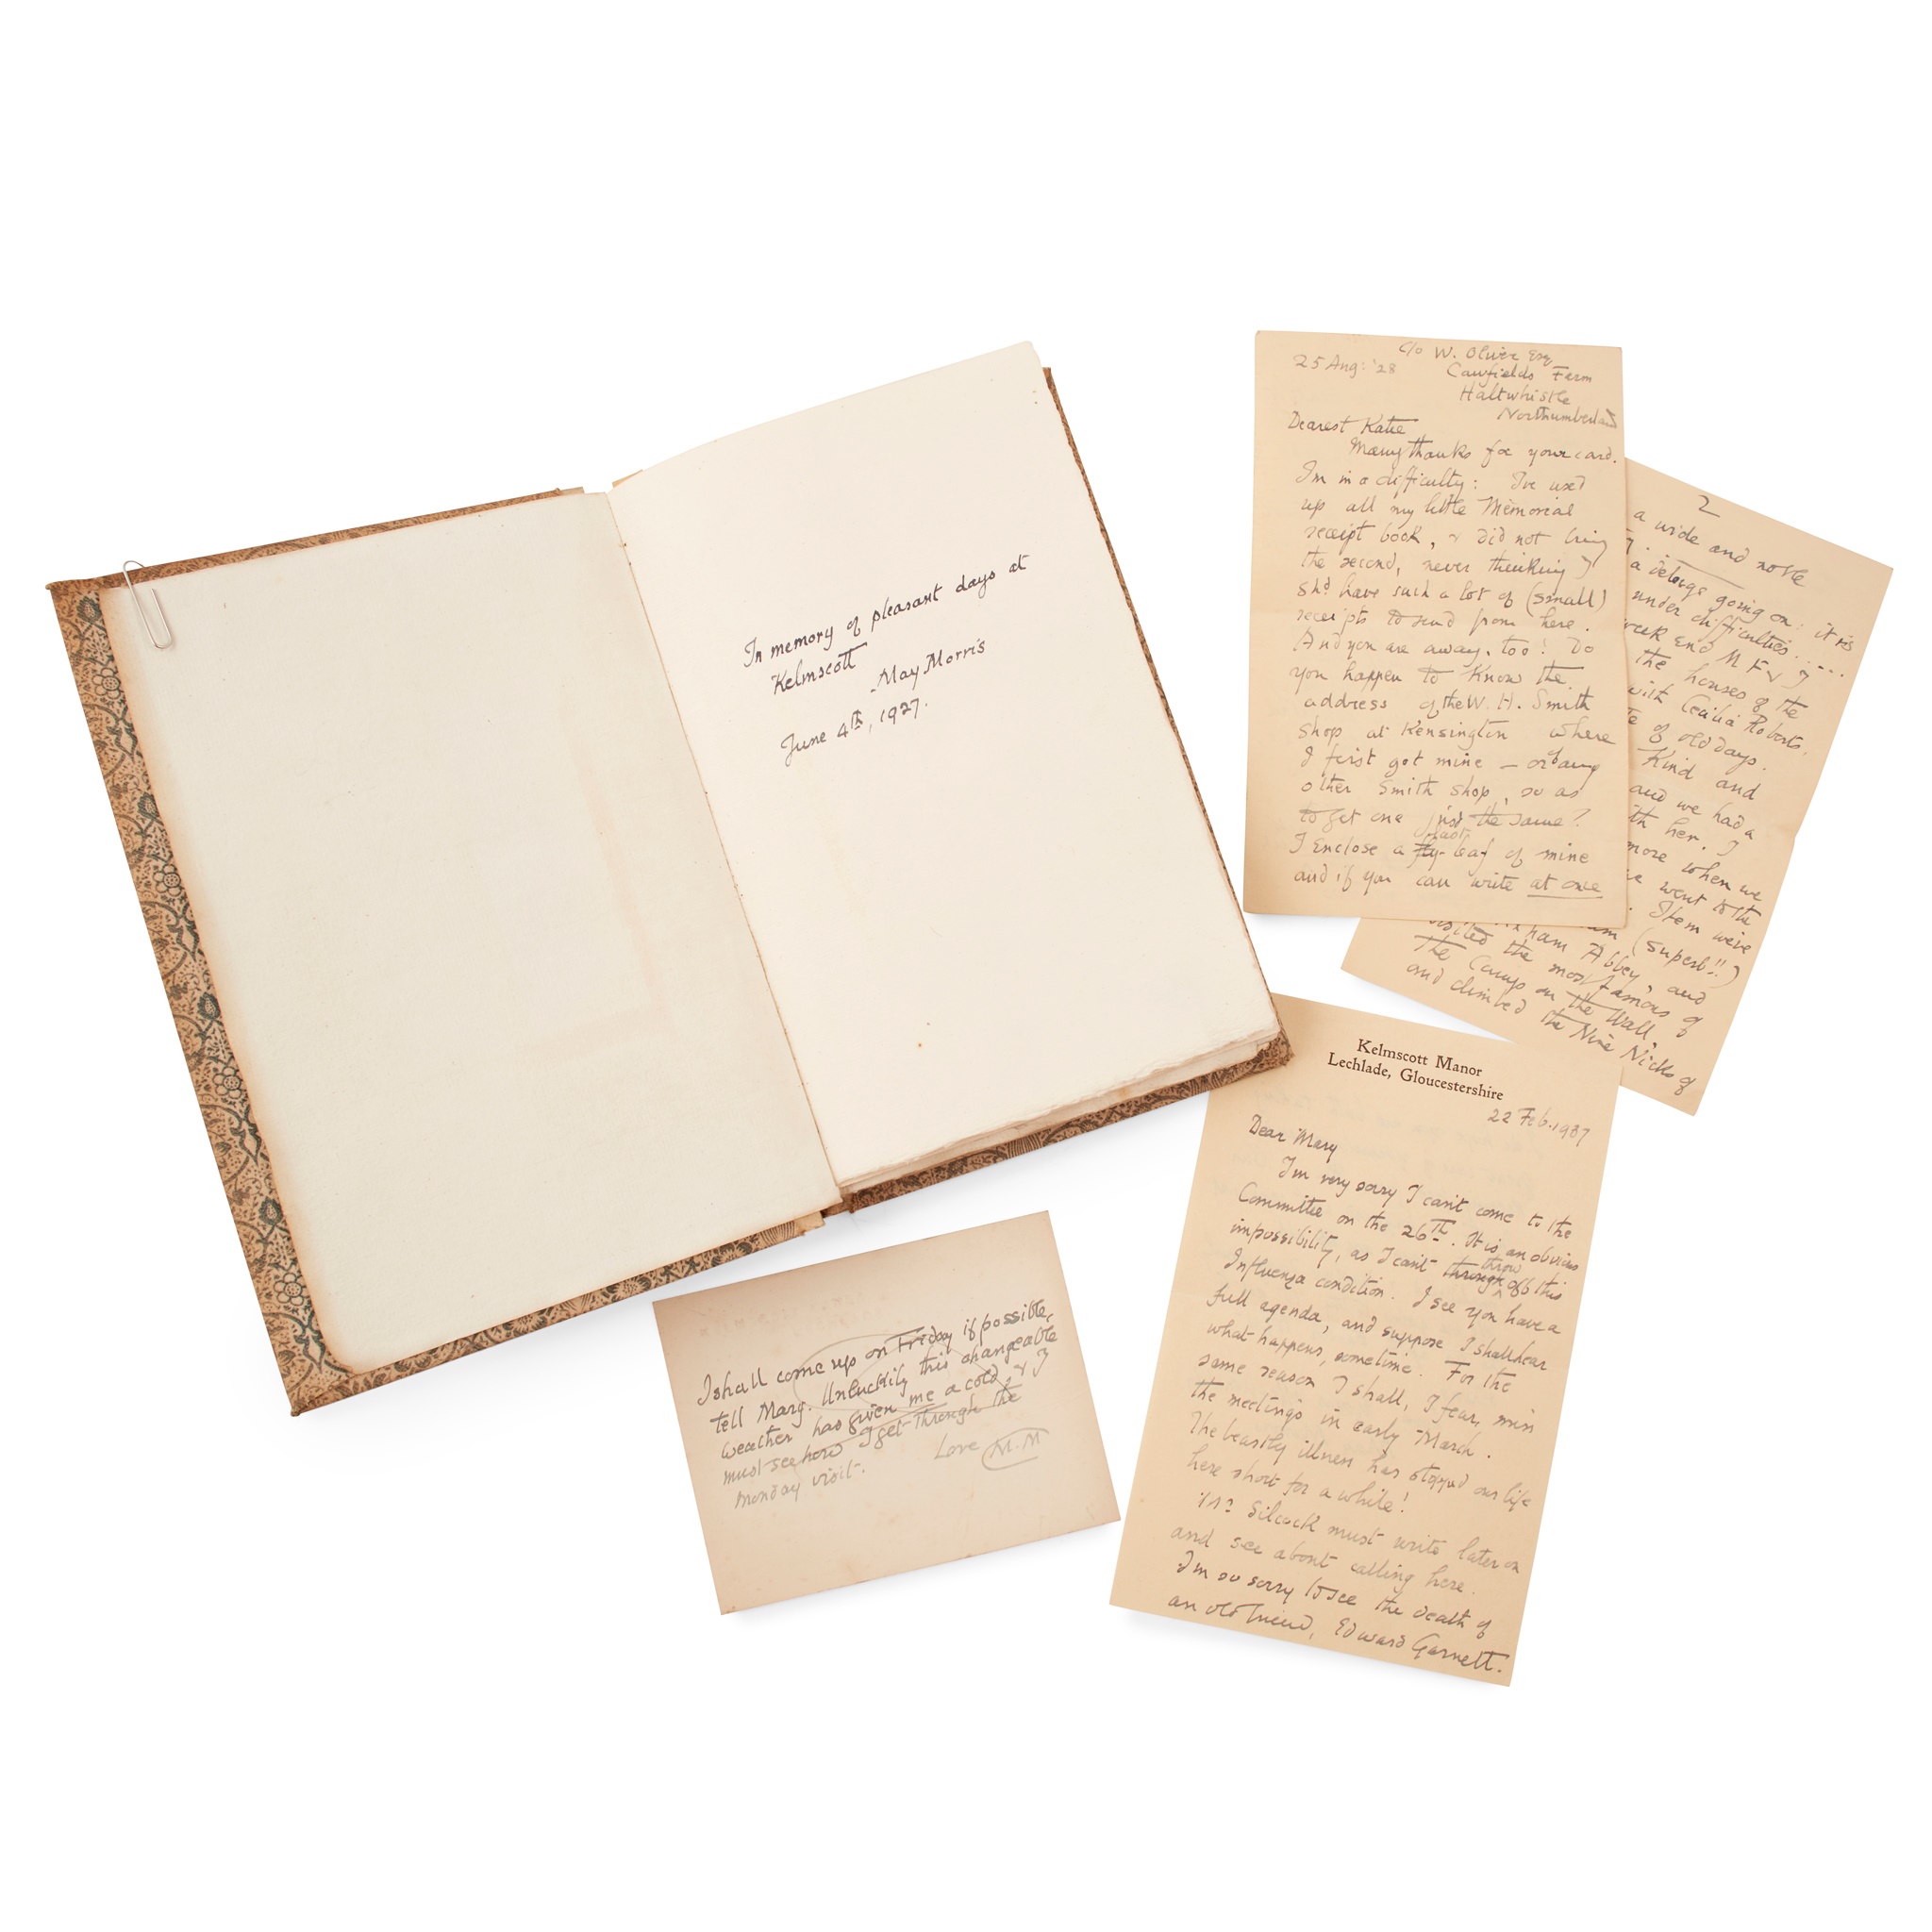 In memory of pleasant days at
Kelmscott
- May Morris
June 4th, 1927.
25 Aug: '28
c/o W. Oliver Esq
Cawfields Farm
Haltwhistle
Northumberland
Dearest Katie
Many thanks for your card.
I'm in a difficulty: I've used
up all my little Memorial
receipt book, & did not bring
the second, never thinking I
shd have such a lot of (small)
receipts to send from here.
And you are away, too! Do
you happen to know the
address of the W. H. Smith
shop at Kensington where
I first got mine – or any
other Smith shop, so as
to get one just the same?
I enclose a fly-leaf of mine
and if you can write at once
2
a wide and noble
a deluge going on: it is
under difficulties....
week end M F & I
the houses of the
with Cecilia Roberts,
of old days.
Kind and
and we had a
with her. I
more when we
we went to the
. Item were
(superb!!)
ham Abbey, and
visited the most famous of
the Camps on the Wall,
and climbed the Nine Nicks of
Kelmscott Manor
Lechlade, Gloucestershire
22 Feb. 1937
Dear Mary
I'm very sorry I can't come to the
Committee on the 26th. It is an obvious
impossibility, as I can't through throw off this
Influenza condition. I see you have a
full agenda, and suppose I shall hear
what happens, sometime. For the
same reason I shall, I fear, miss
the meetings in early March.
The beastly illness has stopped our life
here short for a while!
Silcock must write later on
and see about calling here.
I'm so sorry to see the death of
an old friend, Edward Garnett.
I shall come up on Friday if possible,
tell Marg. Unluckily this changeable
weather has given me a cold, & I
must see how I get through the
Monday visit.
Love M.M